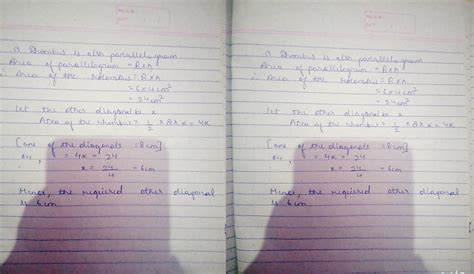 A Rhombus is also parallelogram
Area of parallelogram = B x A
∴ Area of the Rhombus = B x A
= 6 x 4 cm²
= 24 cm²
Let the other diagonal be x
Area of the rhombus = 1/2 x 8 x x = 4x
[one of the diagonals = 8 cm]
= 4x = 24
x = 24/4 = 6 cm
Hence, the required other diagonal
is 6 cm.
A Rhombus is also parallelogram
Area of parallelogram = B x A
∴ Area of the Rhombus = B x A
= 6 x 4 cm²
= 24 cm²
Let the other diagonal be x
Area of the rhombus = 1/2 x 8 x x = 4x
[one of the diagonals = 8 cm]
= 4x = 24
x = 24/4 = 6 cm
Hence, the required other diagonal
is 6 cm.